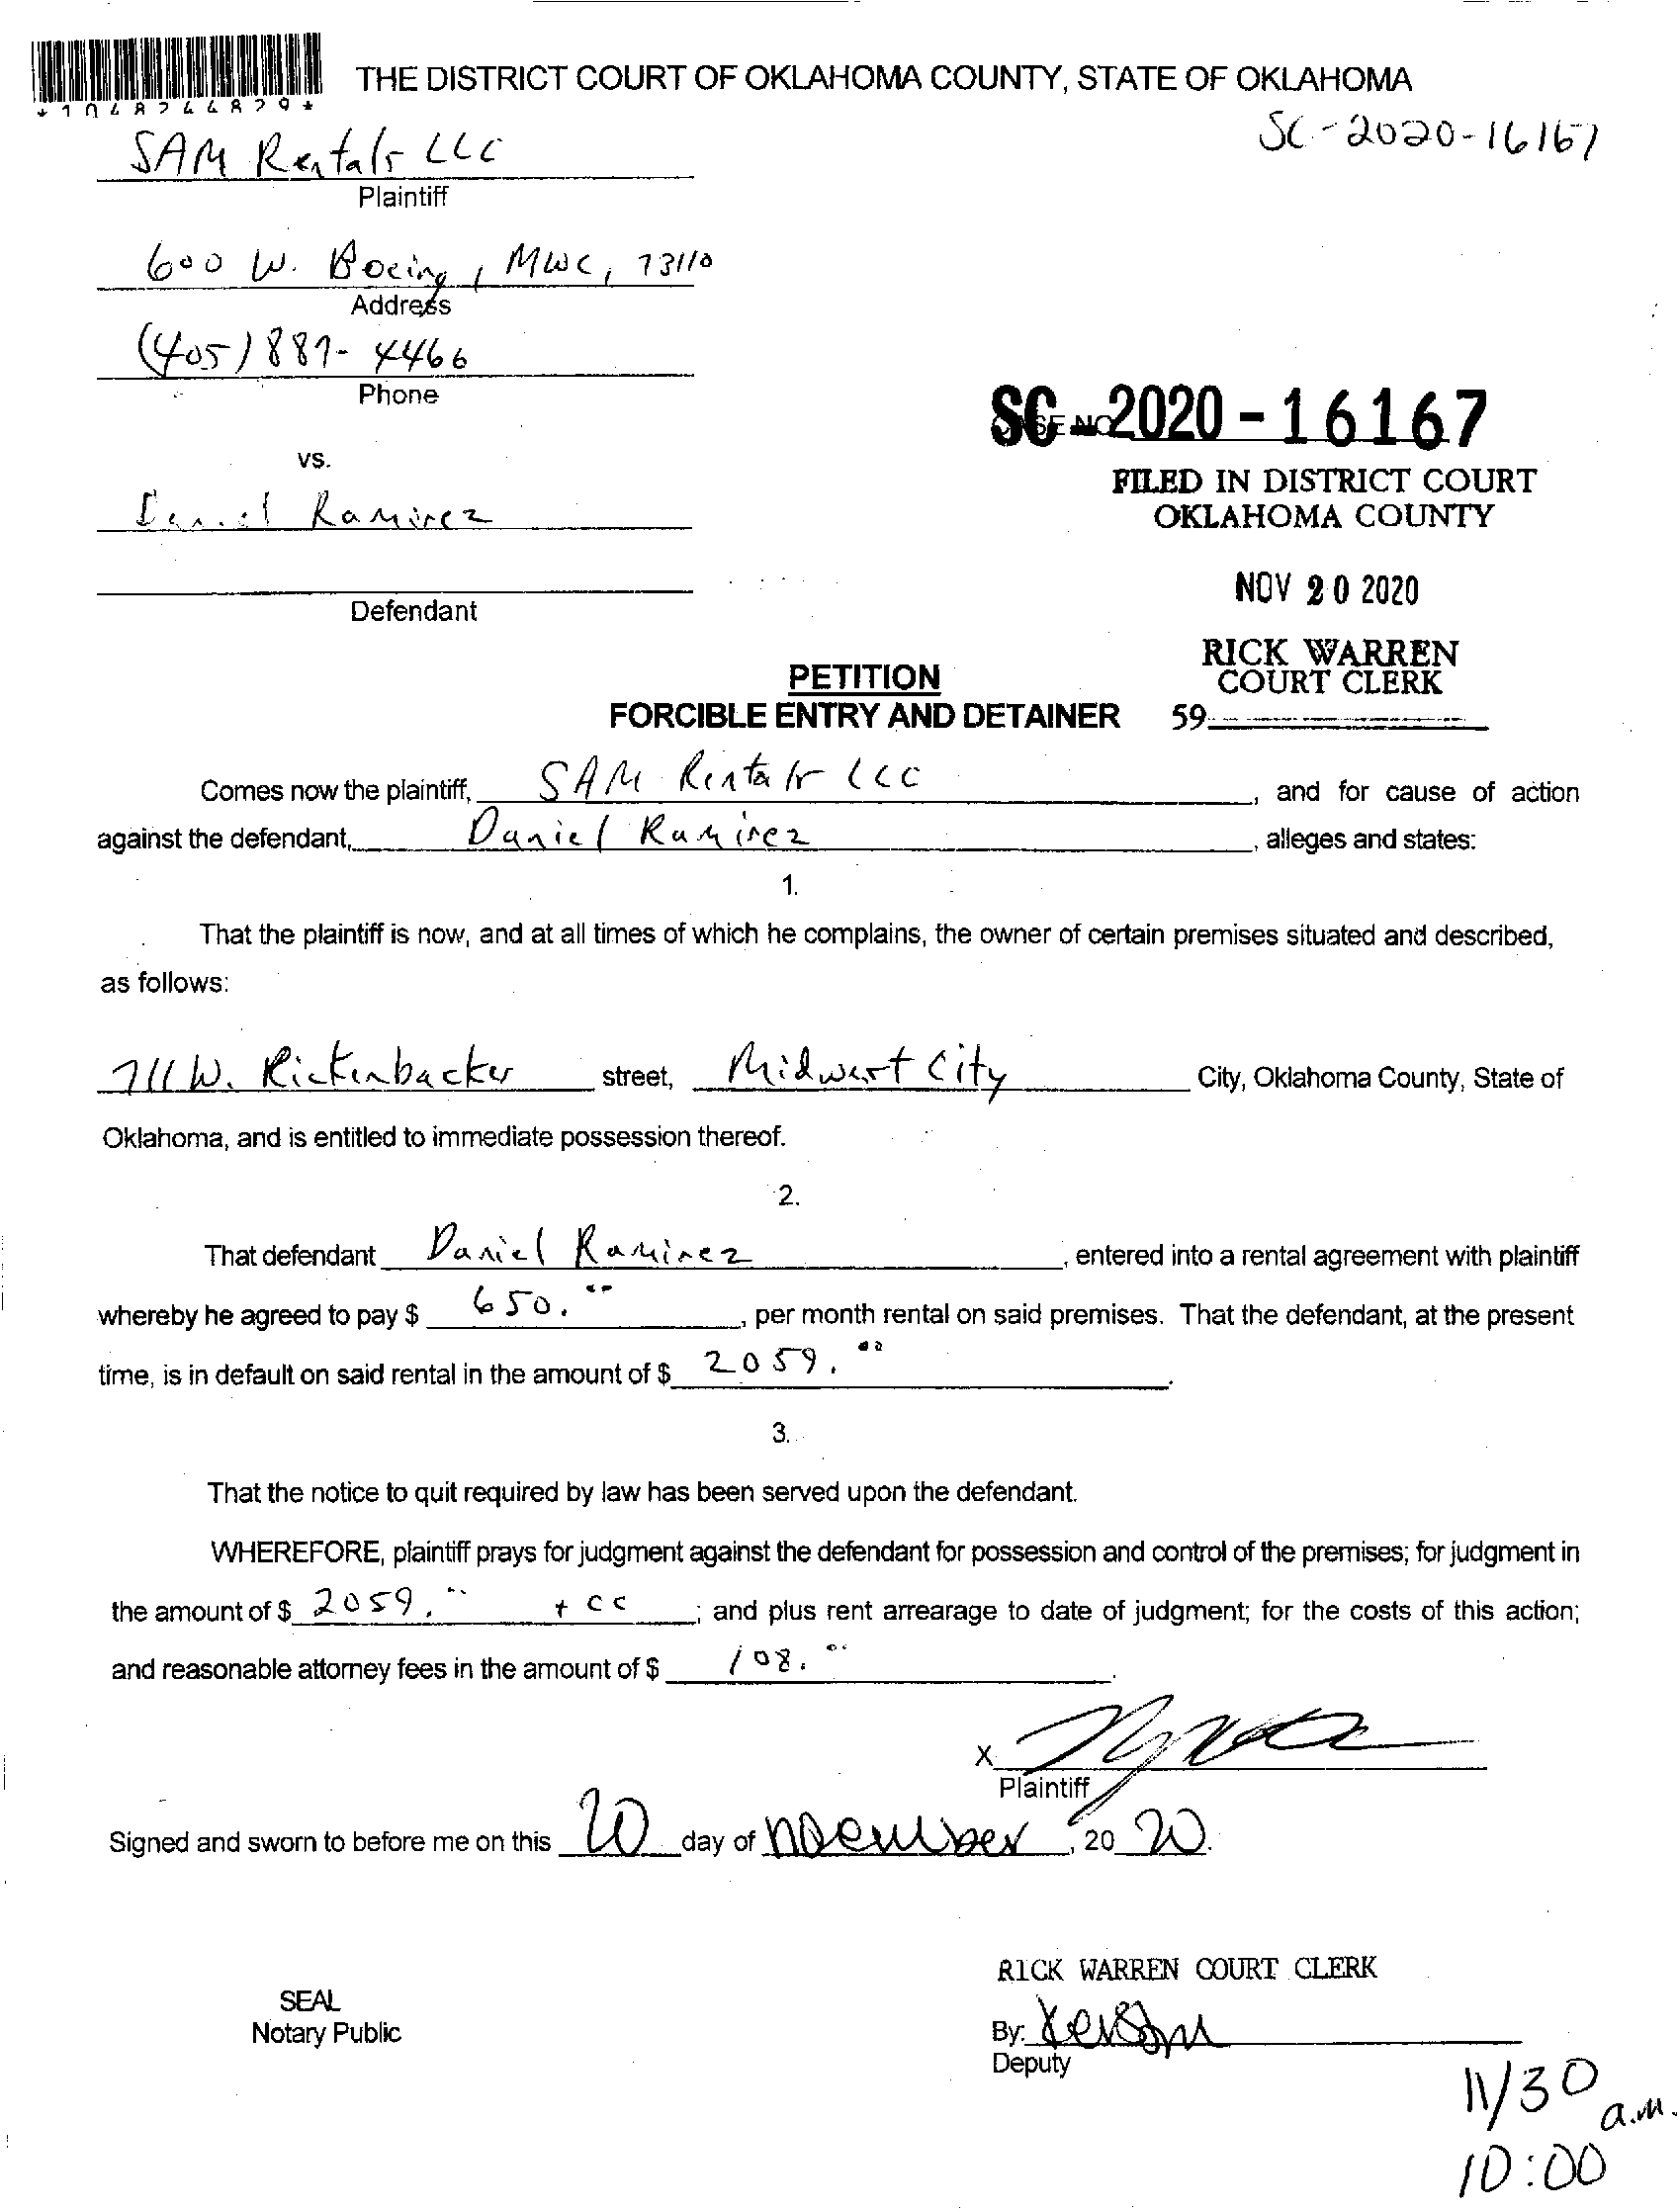 THE DISTRICT COURT OF OKLAHOMA COUNTY, STATE OF OKLAHOMA
*1048266829*
SC-2020-16167
SAM Rentals LLC
Plaintiff
600 W. Boeing, MWC, 73110
Address
(405) 887-4466
Phone
SC-2020-16167
CASE NO.
vs.
FILED IN DISTRICT COURT
OKLAHOMA COUNTY
Daniel Ramirez
NOV 20 2020
Defendant
RICK WARREN
COURT CLERK
59
PETITION
FORCIBLE ENTRY AND DETAINER
Comes now the plaintiff, SAM Rentals LLC, and for cause of action
against the defendant, Daniel Ramirez, alleges and states:
1.
That the plaintiff is now, and at all times of which he complains, the owner of certain premises situated and described,
as follows:
711 W. Rickenbacker street, Midwest City City, Oklahoma County, State of
Oklahoma, and is entitled to immediate possession thereof.
2.
That defendant Daniel Ramirez, entered into a rental agreement with plaintiff
whereby he agreed to pay $ 650.00, per month rental on said premises. That the defendant, at the present
time, is in default on said rental in the amount of $ 2059.00.
3.
That the notice to quit required by law has been served upon the defendant.
WHEREFORE, plaintiff prays for judgment against the defendant for possession and control of the premises; for judgment in
the amount of $ 2059.00 + CC; and plus rent arrearage to date of judgment; for the costs of this action;
and reasonable attorney fees in the amount of $ 108.00.
X
Plaintiff
Signed and sworn to before me on this 20 day of November, 20 20.
RICK WARREN COURT CLERK
SEAL
Notary Public
By:
Deputy
11/30
a.m.
10:00